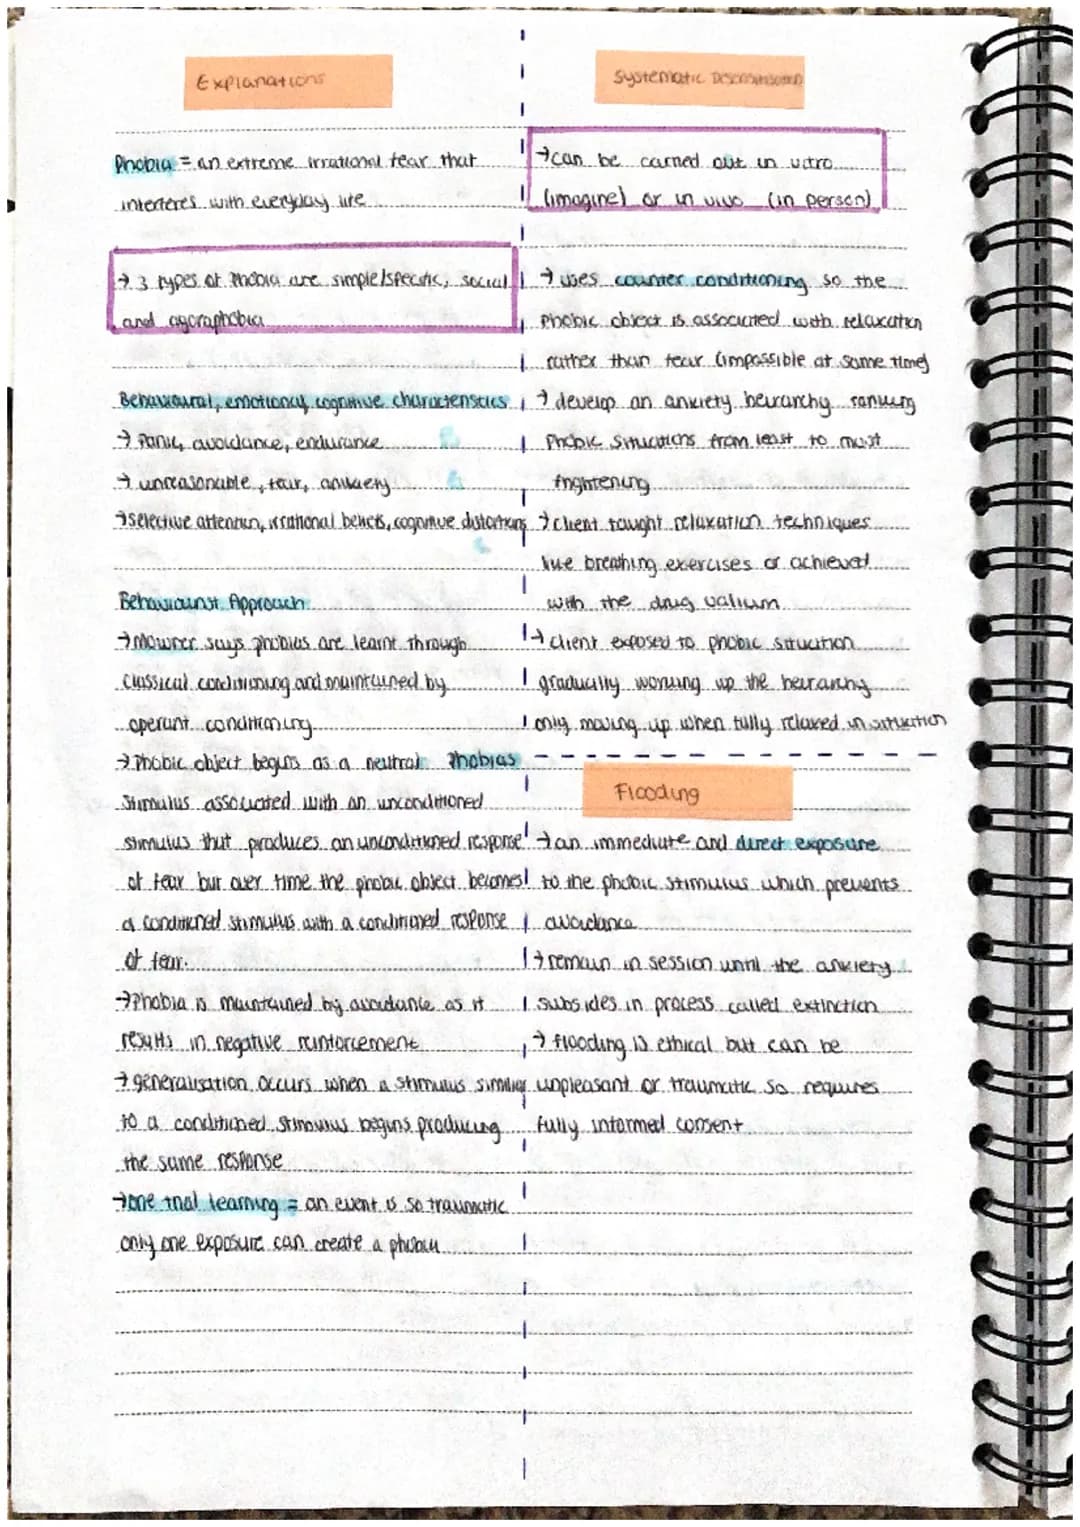 Explanations
Phobia = an extreme irrational fear that
interferes with everyday life
→ 3 types of phobia are simple/specific, social
and agoraphobia
Behavioural, emotional, cognitive characteristics
→ Panic, avoidance, endurance
→ unreasonable, fear, anxiety
→ selective attention, irrational beliefs, cognitive distortions
Behaviourist Approach
→ Mowrer says phobias are learnt through
classical conditioning and maintained by
operant conditioning
→ Phobic object begins as a neutral
Phobias
stimulus associated with an unconditioned
stimulus that produces an unconditioned response
of fear but over time the phobic object becomes
a conditioned stimulus with a conditioned response
of fear.
→ Phobia is maintained by avoidance as it
results in negative reinforcement
→ generalisation occurs when a stimulus similar
to a conditioned stimulus begins producing
the same response
→ one trial learning = an event is so traumatic
only one exposure can create a phobia
Systematic Desensitisation
→ can be carried out in vitro
(imagine) or in vivo (in person)
→ uses counter conditioning so the
phobic object is associated with relaxation
rather than fear (impossible at same time)
→ develop an anxiety heirarchy ranking
phobic situations from least to most
frightening
→ client taught relaxation techniques
like breathing exercises or achieved
with the drug valium
→ client exposed to phobic situation
gradually working up the heirarchy
only moving up when fully relaxed in situation
Flooding
→ an immediate and direct exposure
to the phobic stimulus which prevents
avoidance
→ remain in session until the anxiety
subsides in process called extinction
→ flooding is ethical but can be
unpleasant or traumatic so requires
fully informed consent